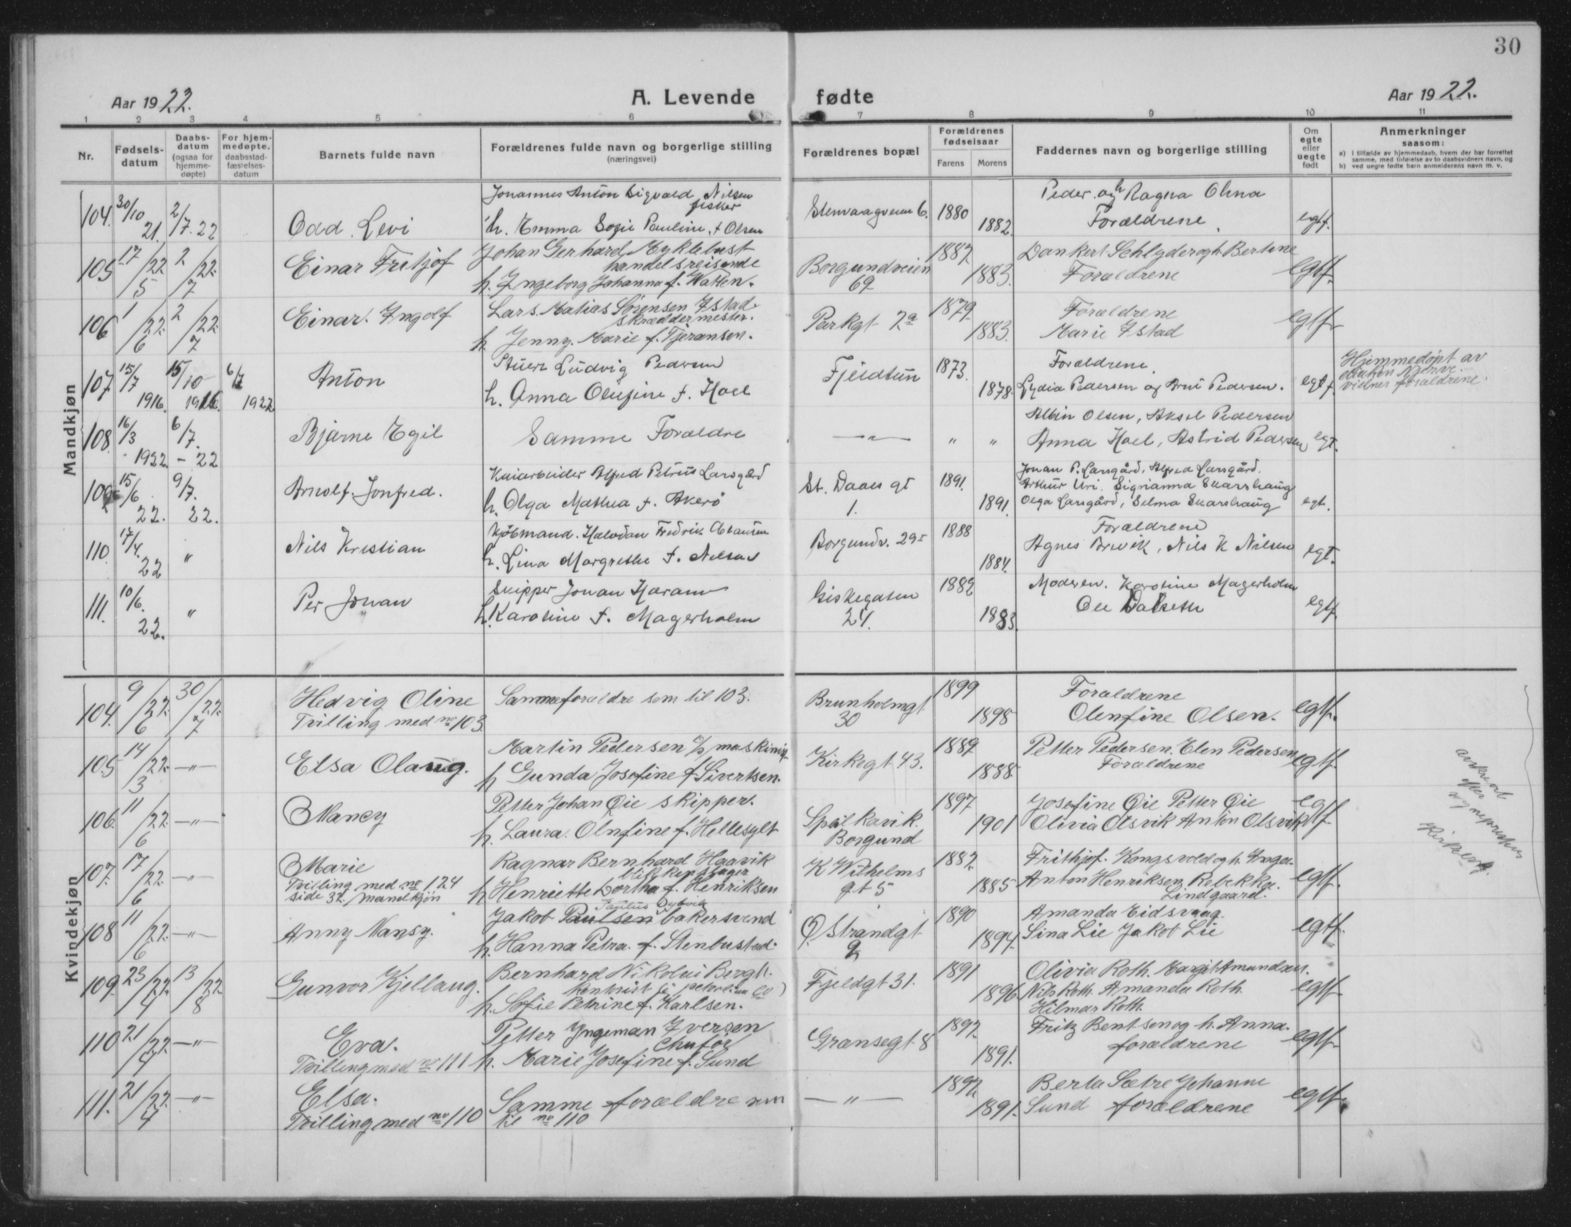 30
Aar 1922. A. Levende fødte Aar 1922.
1 2 3 4 5 6 7 8 9 10 11
Nr.
Fødsels-
datum
Daabs-
datum
(ogsaa for
hjemme-
døpte)
For hjem-
medøpte.
daabsstad-
fæstelses-
datum
Barnets fulde navn
Forældrenes fulde navn og borgerlige stilling
(næringsvei)
Forældrenes bopæl
Forældrenes
fødselsaar
Farens Morens
Faddernes navn og borgerlig stilling
Om
egte
eller
uegte
født
Anmerkninger
saasom:
a) I tilfælde av hjemmedaab, hvem der har forrettet
samme, med tilføielse av to daabsvidners navn, og
b) ved uegte fødte barn anmelderens navn m. v.
Mandkjøn
Johannes Anton Sigvald Nilsen
fisker
Peder og h. Ragna Ohna
104. 30/10 21. 2/7 22 Odd Levi h. Emma Sofie Pauline f. Olsen 6. 1880 1882 Forældrene. egtf.
105 17/5 22 2/7 22. Einar Fritjof Johan Gerhard Myklebust
handelsreisende
h. Ingeborg Johanna f. Watten.
Borgundveien
69
1887 1883. Dankert Schlyder og h. Bertine
Forældrene
egtf.
106 1/6 22. 2/7 22. Einar Ingolf Lars Matias Sørensen Ystad.
skræddermester.
h Jenny Marie f. Fjeransen.
Parkgt 2a 1879 1883. Forældrene
Marie Ystad
egtf
107 15/7 1916. 15/10 1916. 1922 Anton
Ludvig Pedersen
h. Anna Olufine f. Hoel
Fjeldtun 1873. 1878. Forældrene.
Lydia Pedersen og Pedersen. egtf.
Hjemmedøpt av
vidner forældrene.
108. 16/3 1922. 6/7. - 22 Bjarne Egil Samme Forældre —"— " "
Albin Olsen, Aksel Pedersen
Anna Hoel, Astrid Pedersen egt.
109 15/6 22. 9/7. 22. Arnolf Jonfred.
Kaiarbeider Alfred Petrus Larsgård
h. Olga Mathea f. Akerø
St. Daaes gt
1.
1891. 1891.
Johan P. Larsgård, Alfred Larsgård.
Arthur Uri. Sigrianna Skarshaug
Olga Larsgård, Selma Skarshaug egt.
110. 17/4. 22 " Nils Kristian
Kjøbmand. Halvdan Fredrik
h. Lina Margrethe f. Nilsen
Borgundv. 29 1888 1884.
Forældrene
Agnes Brevik, Nils K Nilsen egt.
111. 10/6. 22. " Per Johan
Skipper Johan Haram
h. Karoline f. Magerholm
Giskegaten
24.
1882 1883.
Moderen. Karoline Magerholm
Ole Dalseth egtf
Kvindekjøn
104. 9/6 22. 30/7 22. Hedvig Oline
Tvilling med no 103
Samme forældre som til 103.
Brunholmgt
30
1899 1898
Forældrene
Olenfine Olsen. egtf.
105 14/3 22. —"— Elsa Olaug.
Martin Pedersen
h Gunda Josefine f. Sivertsen
Kirkegt 43. 1889 1888
Petter Pedersen. Elen Pedersen
Forældrene egtf
106 11/6 22 —"— Nancy
Petter Johan Øie skipper.
h. Laura Olufine f. Hellesylt
Spjelkavik
Borgund
1897 1901
Josefine Øie Petter Øie
Olivia Olsvik Anton Olsvik egtf
107. 17/6 22 —"— Marie
Tvilling med no 124
side 32, mandkjøn
Ragnar Bernhard Haavik
blikkenslager
h Henriette Dorthea f. Henriksen
K Wilhelms
gt 5
1882 1885
Frithjof Kongsvold og h. Inga
Anton Henriksen Rebekka
Lindgaard. egtf.
108 11/6 22 —"— Anny Nansy.
Jakob Paulsen bakersvend
h. Hanna Petra f. Stenbustad.
Ø Strandgt
9
1890 1894.
Amanda Eidsvaag
Sina Lie Jakob Lie egtf.
109. 23/4 22 13/8 22 Gunvor Kjellaug.
Bernhard Nikolai Borgh.
h. Sofie Petrine f. Karlsen.
Fjeldgt 31. 1891 1896
Olivia Roth. Margit Amundsen.
Nils Roth. Amanda Roth
Hilmar Roth. egtf
110 21/4 22 —"— Eva.
Tvilling med no 111
Petter Yngeman Iversen
Chufør
h. Marie Josefine f. Sund
Gransegt 8 1892. 1891.
Fritz Bentsen og h. Anna.
forældrene egtf
111. 21/4 22 —"— Elsa.
Tvilling med no 110
Samme forældre som
til no 110
—"— 1892. 1891.
Berta Sætre Johanne
Sund forældrene egtf.